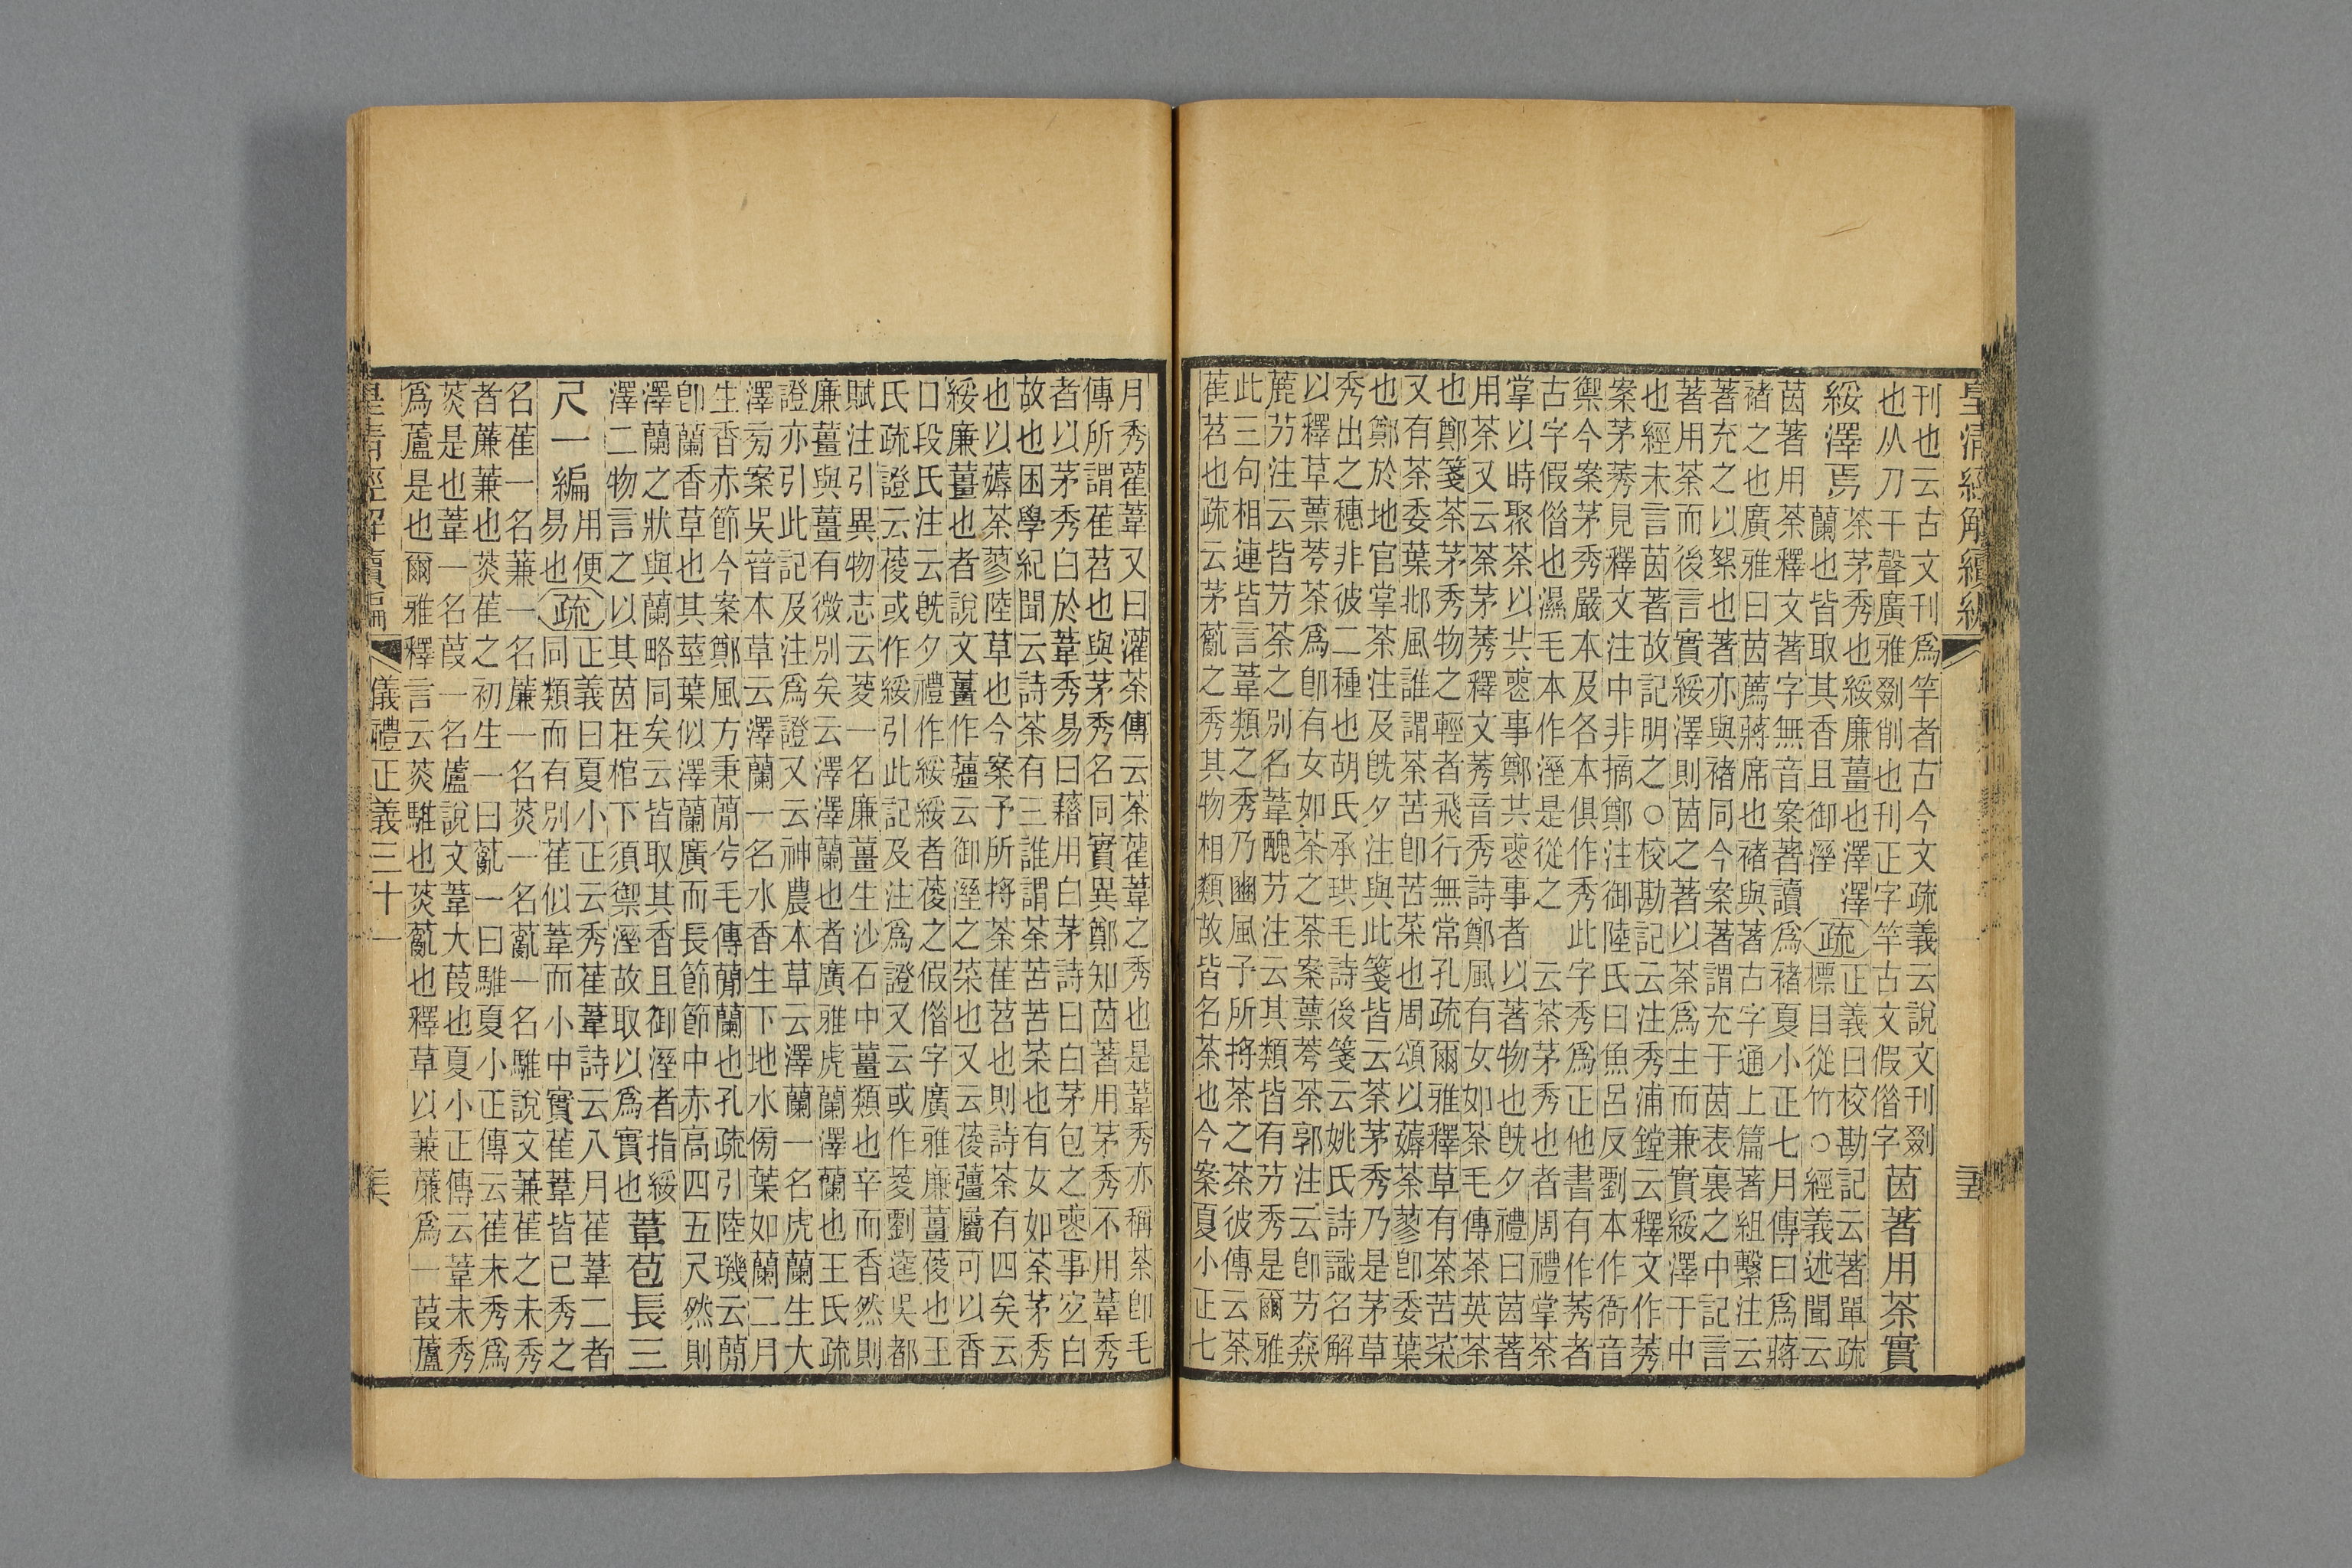 皇清經解續編
刊也云古文刊為竿者古今文疏義云說文刊剟
也从刀干聲廣雅剟削也刊正字竿古文假借字
茵著用荼實
綏澤焉
荼茅秀也綏廉薑也澤澤
蘭也皆取其香且御溼
疏
正義曰校勘記云著單疏
標目從竹○經義述聞云
茵著用荼釋文著字無音案著讀為褚夏小正七月傳曰為蔣
褚之也廣雅曰茵薦蔣席也褚與著古字通上篇著組繫注云
著充之以絮也著亦與褚同今案著謂充于茵表裏之中記言
著用荼而後言實綏澤則茵之著以荼為主而兼實綏澤于中
也經未言茵著故記明之○校勘記云注秀浦鏜云釋文作莠
案茅莠見釋文注中非摘鄭注御陸氏曰魚呂反劉本作衙音
禦今案茅秀嚴本及各本俱作秀此字秀為正他書有作莠者
古字假借也濕毛本作溼是從之云荼茅秀也者周禮掌荼
掌以時聚荼以共喪事鄭共喪事者以著物也旣夕禮曰茵著
用荼又云荼茅莠釋文莠音秀詩鄭風有女如荼毛傳荼英荼
也鄭箋荼茅秀物之輕者飛行無常孔疏爾雅釋草有荼苦菜
又有荼委葉邶風誰謂荼苦卽苦菜也周頌以薅荼蓼卽委葉
也鄭於地官掌荼注及旣夕注與此箋皆云荼茅秀乃是茅草
秀出之穗非彼二種也胡氏承珙毛詩後箋云姚氏詩識名解
以釋草蔈荂荼為卽有女如荼之荼案蔈荂荼郭注云卽芀猋
藨芀注云皆芀荼之別名葦醜芀注云其類皆有芀秀是爾雅
此三句相連皆言葦類之秀乃豳風予所捋荼之荼彼傳云荼
萑苕也疏云茅薍之秀其物相類故皆名荼也今案夏小正七
月秀雚葦又曰灌荼傳云荼雚葦之秀也是葦秀亦稱荼卽毛
傳所謂萑苕也與茅秀名同實異鄭知茵著用茅秀不用葦秀
者以茅秀白於葦秀易曰藉用白茅詩曰白茅包之喪事㝎白
故也困學紀聞云詩荼有三誰謂荼苦苦菜也有女如荼茅秀
也以薅荼蓼陸草也今案予所捋荼萑苕也則詩荼有四矣云
綏廉薑也者說文薑作䕬云御溼之菜也又云葰䕬屬可以香
口段氏注云旣夕禮作綏綏者葰之假借字廣雅廉薑葰也王
氏疏證云葰或作綏引此記及注為證又云或作荾劉逵吳都
賦注引異物志云荾一名廉薑生沙石中薑類也辛而香然則
廉薑與薑有微別矣云澤澤蘭也者廣雅虎蘭澤蘭也王氏疏
證亦引此記及注為證又云神農本草云澤蘭一名虎蘭生大
澤旁案吳普本草云澤蘭一名水香生下地水傍葉如蘭二月
生香赤節今案鄭風方秉蕑兮毛傳蕑蘭也孔疏引陸璣云蕑
卽蘭香草也其莖葉似澤蘭廣而長節節中赤高四五尺然則
澤蘭之狀與蘭略同矣云皆取其香且御溼者指綏
澤二物言之以其茵在棺下須禦溼故取以為實也
葦苞長三
尺一編
用便
易也
疏
正義曰夏小正云秀萑葦詩云八月萑葦二者
同類而有別萑似葦而小中實萑葦皆已秀之
名萑一名蒹一名薕一名菼一名薍一名騅說文蒹萑之未秀
者薕蒹也菼萑之初生一曰薍一曰騅夏小正傳云萑未秀為
菼是也葦一名葭一名蘆說文葦大葭也夏小正傳云葦未秀
為蘆是也爾雅釋言云菼騅也菼薍也釋草以蒹薕為一葭蘆
皇清經解續編 儀禮正義三十一